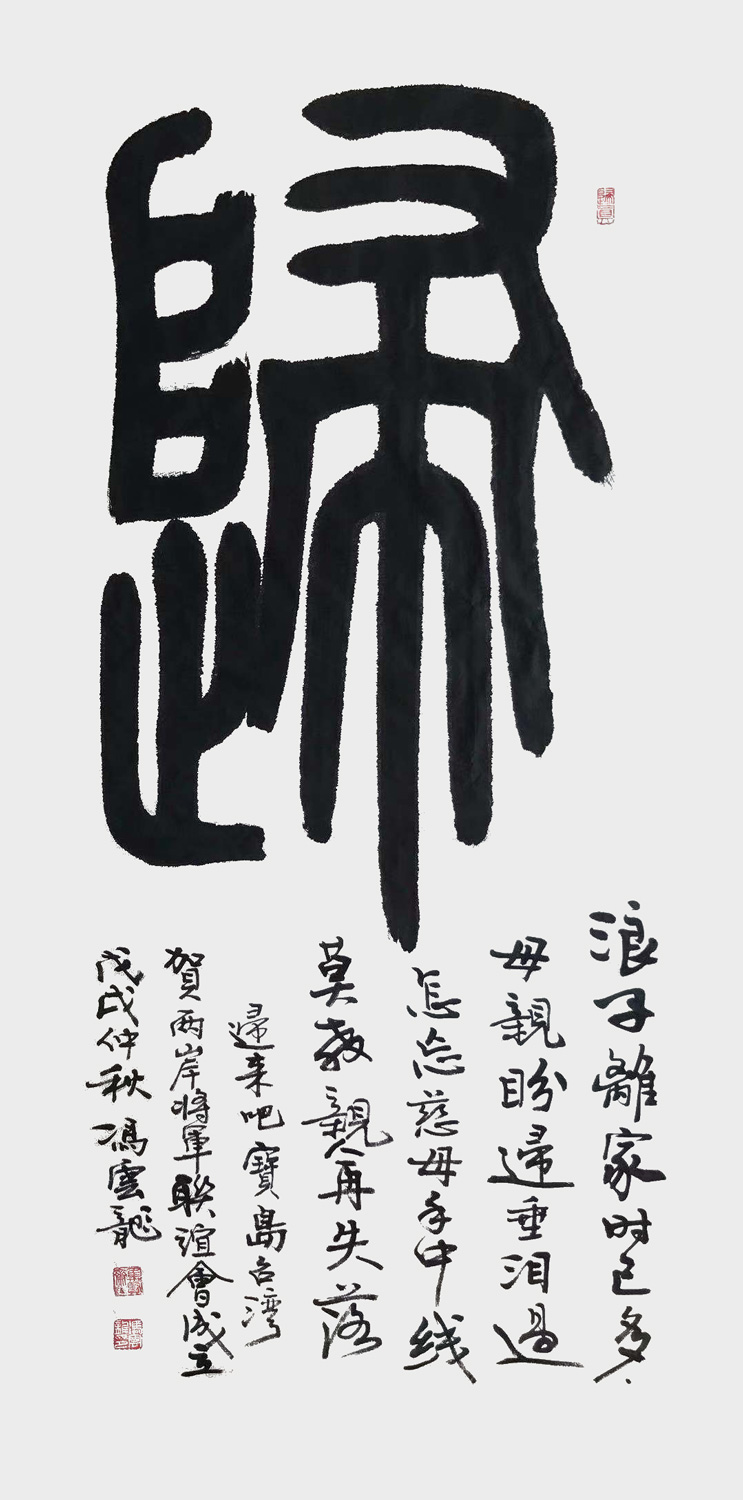 歸
浪子離家时已多
母親盼歸垂泪過
怎忘慈母手中线
莫教親人再失落
歸来吧寶島台湾
賀两岸将軍聯誼會成立
戊戌仲秋馮雲龍